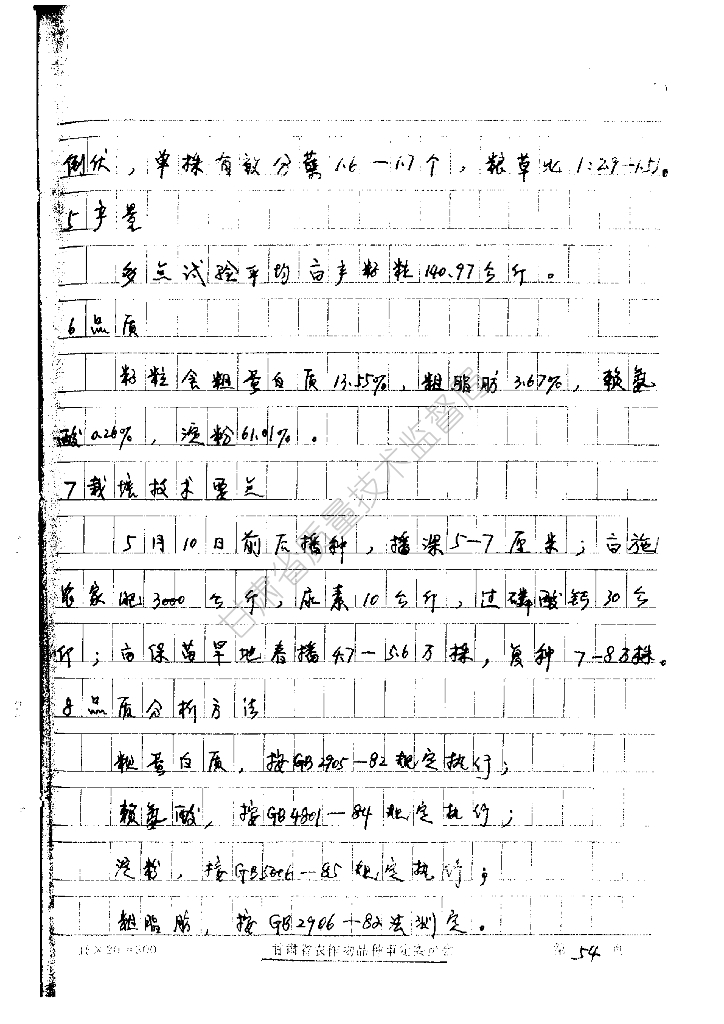 倒伏，单株有效分蘖1.6—1.7个，粮草比1:2.9—1.51。
5 产量
多点试验平均亩产籽粒140.97公斤。
6 品质
籽粒含粗蛋白质13.55%，粗脂肪3.67%，赖氨
酸0.26%，淀粉61.01%。
7 栽培技术要点
5月10日前后播种，播深5—7厘米；亩施
农家肥3000公斤，尿素10公斤，过磷酸钙30公
斤；亩保苗旱地春播4.7—5.6万株，复种7—8万株。
8 品质分析方法
粗蛋白质，按GB2905—82规定执行；
赖氨酸，按GB4801—84规定执行；
淀粉，按GB5006—85规定执行；
粗脂肪，按GB2906—82法测定。
15×20=300 甘肃省农作物品种审定委员会 第 54 页
甘肃省质量技术监督局